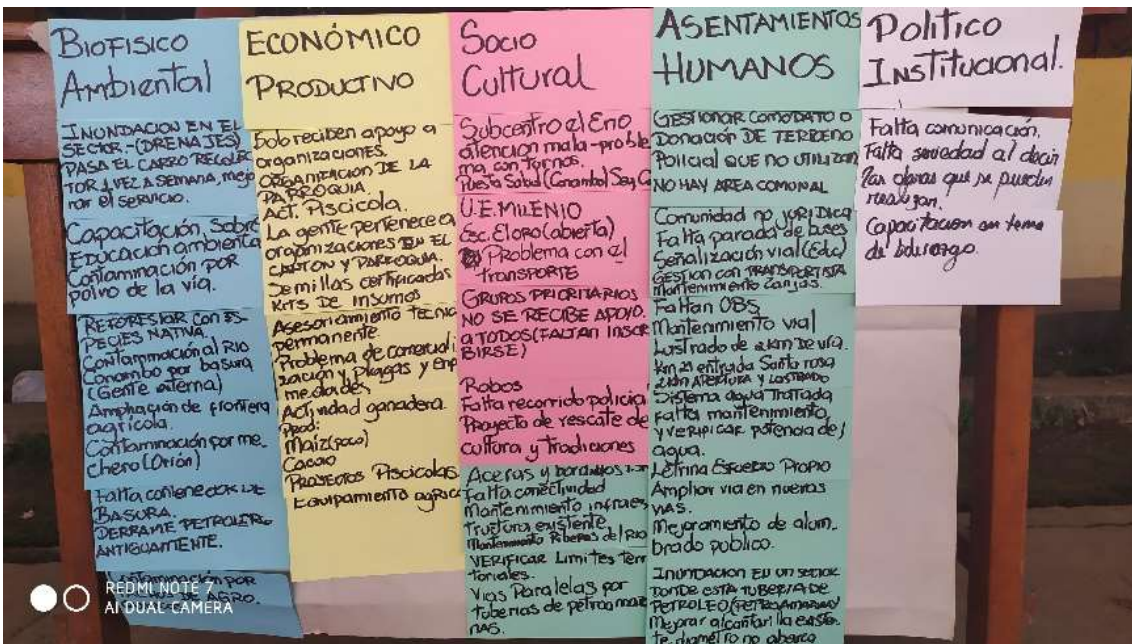 BIOFISICO
Ambiental
INUNDACION EN EL
SECTOR-(DRENAJES)
PASA EL CARRO RECOLEC
TOR 1 VEZ A SEMANA, mejo
rar el servicio.
Capacitación, Sobre
Educacion ambiental
Contaminación POR
polvo de la vía.
REFORESTAR CON ES-
PECIES NATIVA.
Contaminación al RIO
Conambo por basura
(Gente alterna)
Ampliación de frontera
agrícola.
Contaminación por me
chero (Orión)
Falta contenedor DE
BASURA.
DERRAME PETROLERO
ANTIGUAMENTE.
Contaminación POR
DE AGRO.
ECONÓMICO
PRODUCTIVO
Solo reciben apoyo a
organizaciones.
ORGANIZACION DE LA
PARROQUIA.
Act. Piscicola.
La gente pertenece a
organizaciones EN EL
CANTON Y PARROQUIA.
Semillas certificadas
Kits DE insumos
Asesoramiento tecnico
permanente.
Problema de comerciali
zación y Plagas y enfe
medades
Actividad ganadera.
Prod:
Maiz (poco)
Cacao
PROYECTOS Piscicolas.
Equipamiento agrico
Socio
Cultural
Subcentro el Eno
atencion mala-proble
ma con turnos.
Puesto Salud (Conambo) Seg C
U.E. MILENIO
Esc. El oro (abierta)
Problema con el
transporte
GRUPOS PRIORITARIOS
NO SE RECIBE APOYO.
a TODOS (FALTAN INSCRI
BIRSE)
Robos
Falta recorrido policia
Proyecto de rescate de
cultura y Tradiciones
Aceras y bordillos
Falta conectividad
Mantenimiento infraes
tructura existente
Mantenimiento Riberas del Rio
VERIFICAR Limites terri
toriales.
Vias Paralelas por
tuberias de petroamazo
nas.
ASENTAMIENTOS
HUMANOS
GESTIONAR COMODATO O
Donación DE TERRENO
Policial QUE no UTILIZAN
NO HAY AREA COMUNAL
Comunidad no JURIDICA
Falta parada de buses
Señalización vial (Edu)
GESTION CON TRANSPORTISTA
Mantenimiento Zanjas.
Faltan OBS
Mantenimiento vial
Lastrado de 2 km DE vía.
Km 21 entrada Santa rosa
2 km APERTURA Y LASTRADO
Sistema agua Tratada
Falta mantenimiento,
y VERIFICAR potencia del
agua.
Letrina Esfuerzo Propio
Ampliar via en nuevas
VIAS.
Mejoramiento de alum-
brado publico.
INUNDACION EN UN SECTOR
DONDE ESTA TUBERIA DE
PETROLEO (PETROAMAZONAS)
Mejorar alcantarilla existen
te, diametro no abarca
Politico
Institucional.
Falta comunicación.
Falta seriedad al decir
las obras que se pueden
realizar.
Capacitacion en tema
de liderazgo.
REDMI NOTE 7
AI DUAL CAMERA